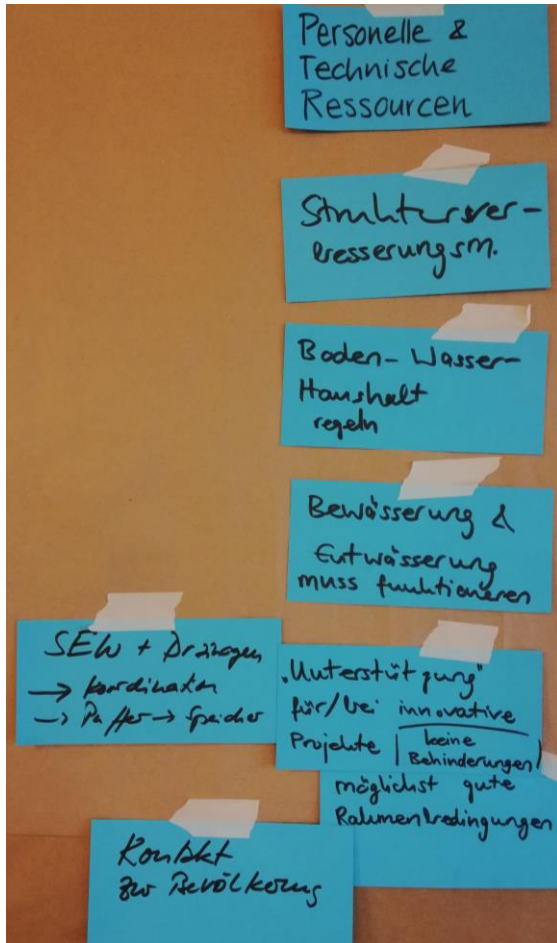 Personelle &
Technische
Ressourcen
Strukturver-
besserungsm.
Boden-Wasser-
Haushalt
regeln
Bewässerung &
Entwässerung
muss funktionieren
SEW + Drainagen
→ Koordination
→ Puffer → Speicher
"Unterstützung"
für/bei innovative
Projekte (keine
Behinderungen)
möglichst gute
Rahmenbedingungen
Kontakt
zur Bevölkerung